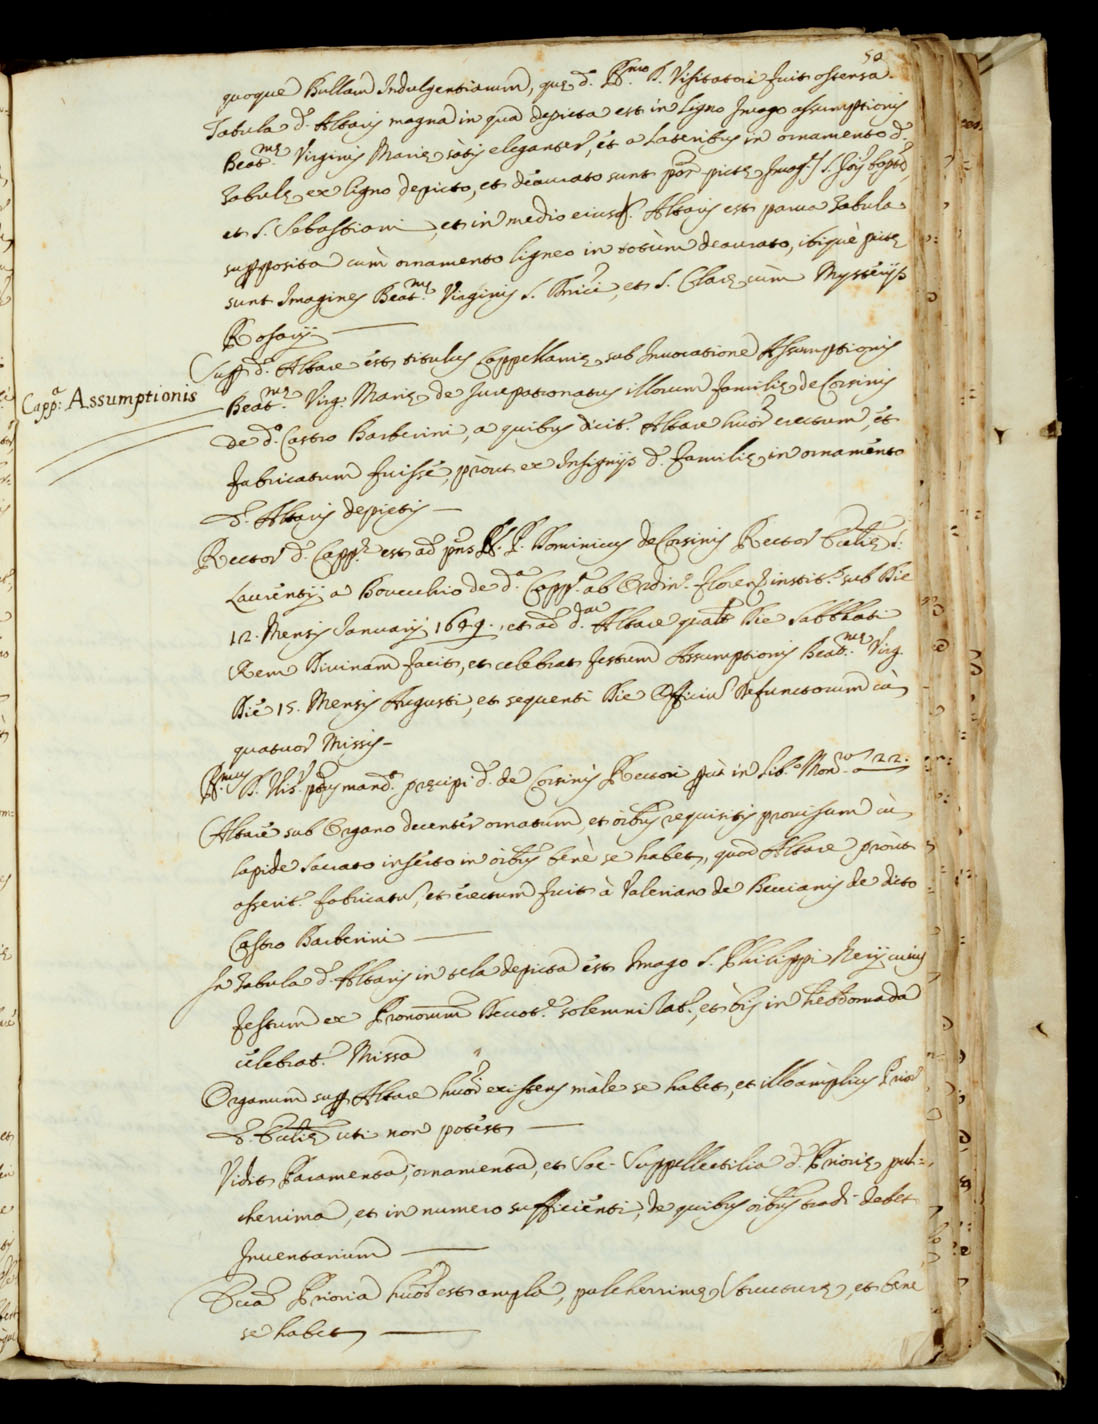 50
quoque Bullam Indulgentiarum, quę d.º R.mo D. Visitatori fuit ostensa.
Tabula d.i Altaris magna in qua depicta est in ligno Imago Assumptionis
Beat.mę Virginis Marię satis eleganter, et a lateribus in ornamento d.ę
Tabulę ex ligno depicto, et deaurato sunt pictę Imag.s S. Bapt.ę
et S. Sebastiani, et in medio eiusd. Altaris est parua Tabula
suppposita cum ornamento ligneo in totùm deaurato, ibiquè pictę
sunt Imagines Beat.mę Virginis S. et S. Clarę cùm Mysterijs
Rosarij
Capp.a Assumptionis
Supp.r d.º Altare est titulus Cappellanię sub Inuocatione Assumptionis
Beat.mę Virg. Marię de Iurepatronatus illorum familię de Corsinis
de d.º Castro Barberini, a quibus dicit.r Altare erectum, et
fabricatum fuisse, pròut ex Insignijs d.ę familię in ornamento
d.i Altaris depictis
Rector d.ę Capp.ę est ad pñs R. P. Dominicus de Corsinis Rector Ecclię S.
Laurentij a Bouecchio de d.a Capp.a ab Ordin.º Floren. instit.s sub Die
12. Mensis Ianuarij 1649., et ad d. Altare qualt Die Sabbhati
Rem Diuinam facit, et celebrat festum Assumptionis Beat.mę Virg.
Die 15. Mensis Augusti, et sequenti Die Officiũ Defunctorum cũ
quatuor Missis
R.mus D. Vis.r mand.t pręcipi d.º de Corsinis Rectori put in Lib.º Mon. nº 22.
Altare sub Organo decenter ornatum, et oibus requisitis prouisum cũ
lapide sacrato inserto in oibus benè se habet, quod Altare pròut
asserit.r fabricatũ, et erectum fuit à Valeriano de Beccianis de dicto
Castro Barberini
In Tabula d.i Altaris in tela depicta est Imago S. Philippi Nerij cuius
festum ex Deuot.e solemnizat.r, et bis in hebdomada
celebrat.r Missa
Organum supp.r Altare existens màle se habet, et illo ampliùs Prior
d.ę Ecclię uti non potest
Vidit Paramenta, ornamenta, et Sac. Suppellectilia d.ę Priorię pul=
cherrima, et in numero sufficienti, de quibus oibus tradi debet
Inuentarium
Dicta Prioria est ampla, pulcherrimę structurę, et bene
se habet